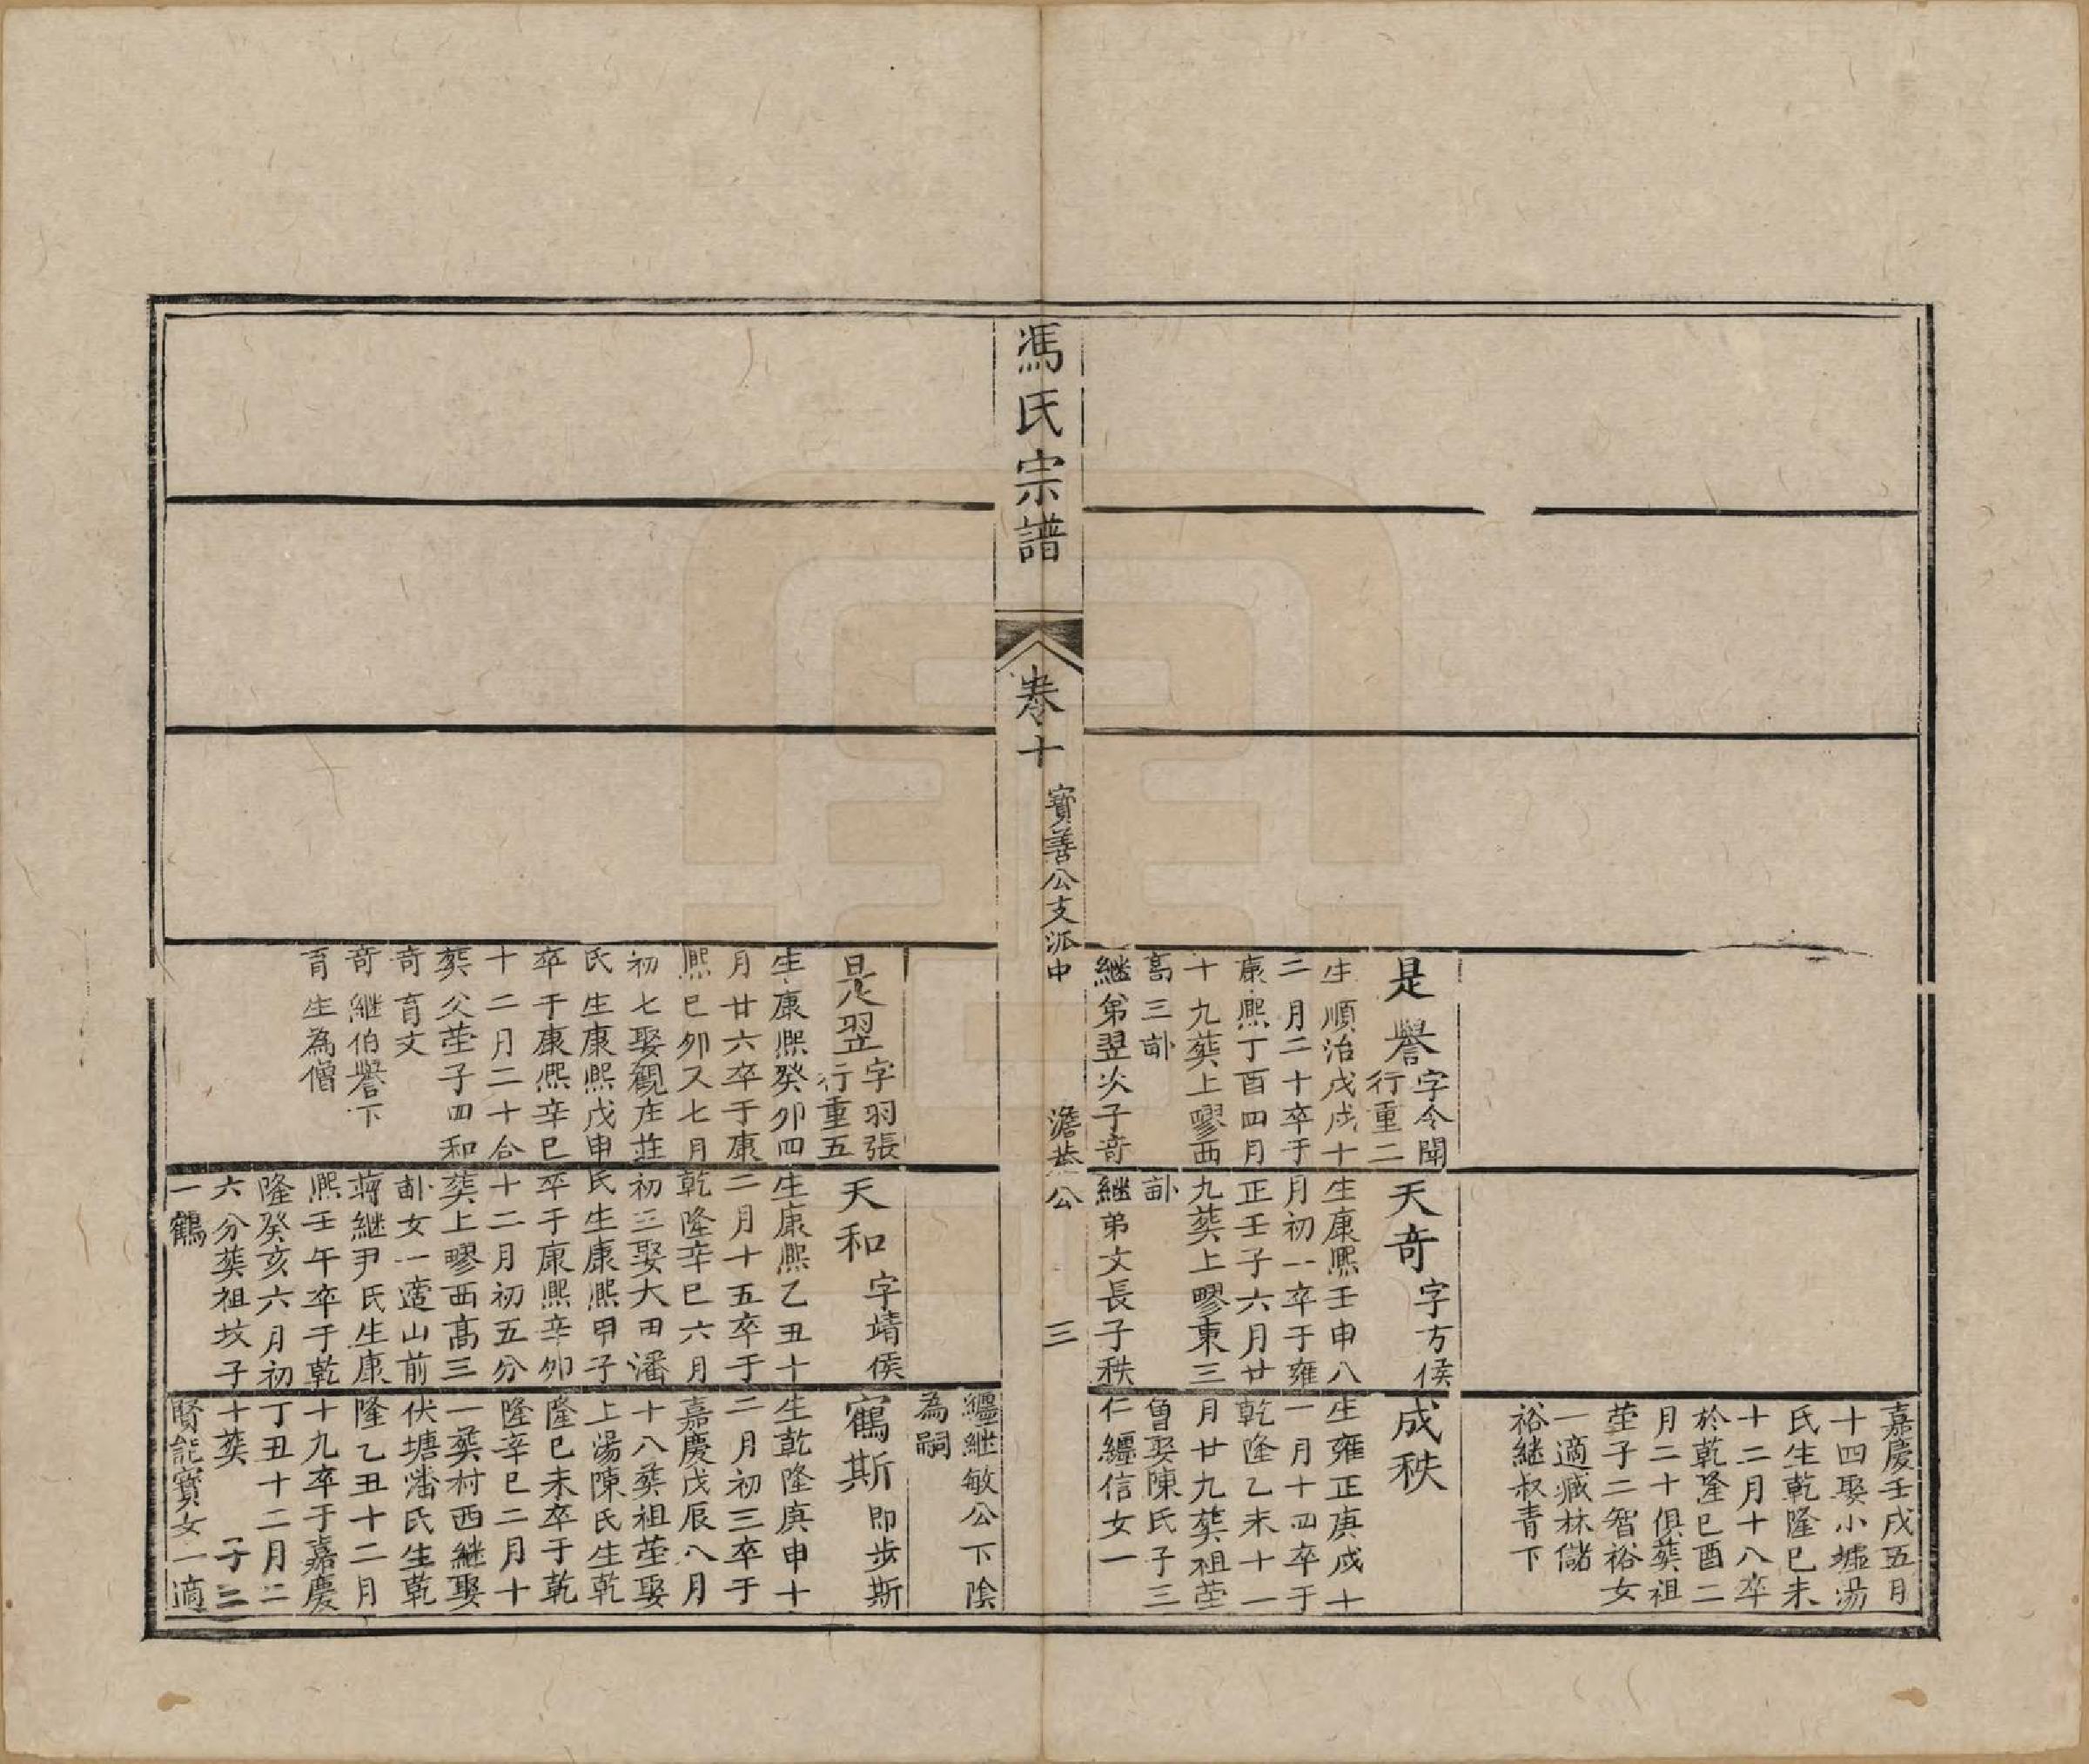 是譽字令聞
行重二
生順治戊戌十
二月二十卒于
康熙丁酉四月
十九葬上郾西
高三卦
継弟翌次子竒
天竒字方侯
生康熙壬申八
月初一卒于雍
正壬子六月廿
九葬上郾東三
卦
継弟文長子秩
嘉慶壬戌五月
十四娶小墟湯
氏生乾隆己未
十二月十八卒
於乾隆己酉二
月二十俱葬祖
茔子二智裕女
一適臧林儲
裕継叔青下
成秩
生雍正庚戌十
一月十四卒于
乾隆乙未十一
月廿九葬祖茔
曾娶陳氏子三
仁纒信女一
馮氏宗譜
卷十
寶善公支派中
澹菴公
三
是翌字羽張
行重五
生康熙癸卯四
月廿六卒于康
熙己卯又七月
初七娶觀庄莊
氏生康熙戊申
卒于康熙辛巳
十二月二十合
葬父茔子四和
竒育文
竒継伯譽下
育生為僧
天和字靖侯
生康熙乙丑十
二月十五卒于
乾隆辛巳六月
初三娶大田潘
氏生康熙甲子
卒于康熙辛卯
十二月初五分
葬上郾西高三
卦女一適山前
蔣継尹氏生康
熙壬午卒于乾
隆癸亥六月初
六分葬祖坟子
一鶴
纒継敏公下隂
為嗣
鶴斯即步斯
生乾隆庚申十
二月初三卒于
嘉慶戊辰八月
十八葬祖茔娶
上湯陳氏生乾
隆己未卒于乾
隆辛巳二月十
一葬村西継娶
伏塘潘氏生乾
隆乙丑十二月
十九卒于嘉慶
丁丑十二月二
十葬 子三
賢能寳女一適